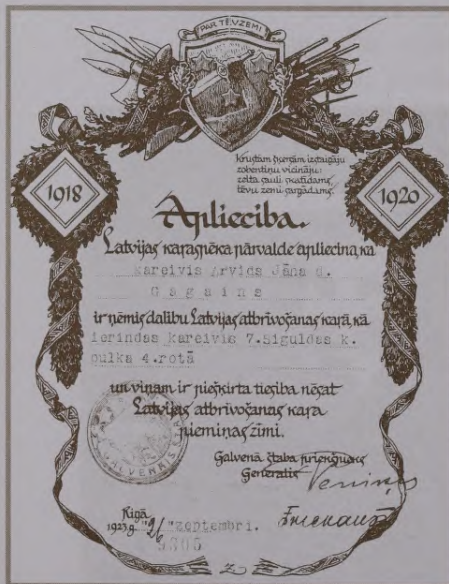 PAR TĒVZEMI
1918
1920
Krustām šķērsām izstaigāju
zobentiņu vicināju:
zelta sauli skatīdams
tēvu zemi sargādams.
Apliecība.
Latvijas karaspēka pārvalde apliecina, ka
kareivis Arvids Jāņa d.
Gagains
ir ņēmis dalību Latvijas atbrīvošanas karā, kā
ierindas kareivis 7.Siguldas k.
pulka 4.rotā
un viņam ir piešķirta tiesība nēsāt
Latvijas atbrīvošanas kara
piemiņas zīmi.
Galvenā štaba priekšnieks
Ģenerālis
Rīgā
1923 g. "septembrī.